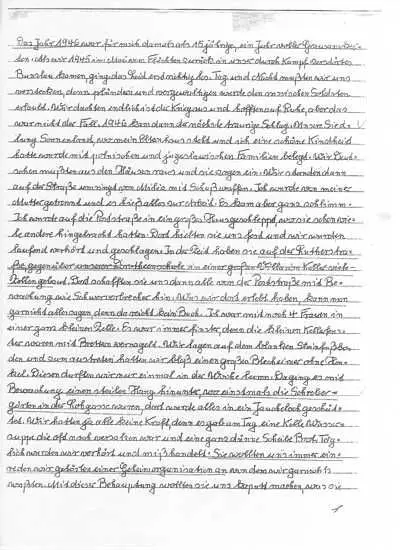 Das Jahr 1946 war für mich damals als 15 jährige, ein Jahr voller Grausamkei-
ten. Als wir 1945 im Mai vom Flüchten zurück in unser durch Kampf zerstörtes
Bunzlau kamen, ging das Leid erst richtig los. Tag und Nacht mußten wir uns
verstecken, denn plündern und vergewaltigen wurde den russischen Soldaten
erlaubt. Wir dachten endlich ist der Krieg aus und hofften auf Ruhe, aber das
war nicht der Fall. 1946 kam dann der nächste traurige Schlag. Unsere Sied-
lung, wo mein Elternhaus steht und ich eine schöne Kindheit
hatte wurde mit polnischen und jugoslawischen Familien belegt. Wir Deut-
schen mußten aus den Häusern raus und sie zogen ein. Wir standen dann
auf der Straße umringt von Miliz mit Schußwaffen. Ich wurde von meiner
Mutter getrennt und es hieß alles zur Arbeit. Es kam aber ganz schlimm.
Ich wurde auf die Poststraße in ein großes Haus geschleppt, wo sie schon vie-
le andere hingebracht hatten. Dort hielten sie uns fest und wir wurden
laufend verhört und geschlagen. In der Zeit haben sie auf der Lutherstra-
ße, gegenüber unserer in einer großen Villa im Keller viele
Zellen gebaut. Dort schafften sie uns dann alle von der Poststraße mit Be-
wachung wie Schwerverbrecher hin. Was wir dort erlebt haben, kann man
gar nicht alles sagen, da reicht kein Buch. Ich war mit noch 4 Frauen in
einer ganz kleinen Zelle. Es war immer finster, denn die kleinen Kellerfen-
ster waren mit Brettern vernagelt. Wir lagen auf dem blanken Steinfußbo-
den und zum austreten hatten wir bloß einen großen Blecheimer ohne Hen-
kel. Diesen durften wir nur einmal in der Woche leeren. Da ging es mit
Bewachung einen steilen Hang hinunter, wo einstmals die Schreber-
gärten in der waren, dort wurde alles in ein Jaucheloch geschüt-
tet. Wir hatten ja alle keine Kraft, denn es gab am Tag, eine Kelle Wasser-
suppe die oft noch versalzen war und eine ganz dünne Scheibe Brot. Täg-
lich wurden wir verhört und mißhandelt. Sie wollten uns immer ein-
reden wir gehörten einer Geheimorganisation an von dem wir gar nichts
wußten. Mit dieser Behauptung wollten sie uns kaputt machen, was sie
1